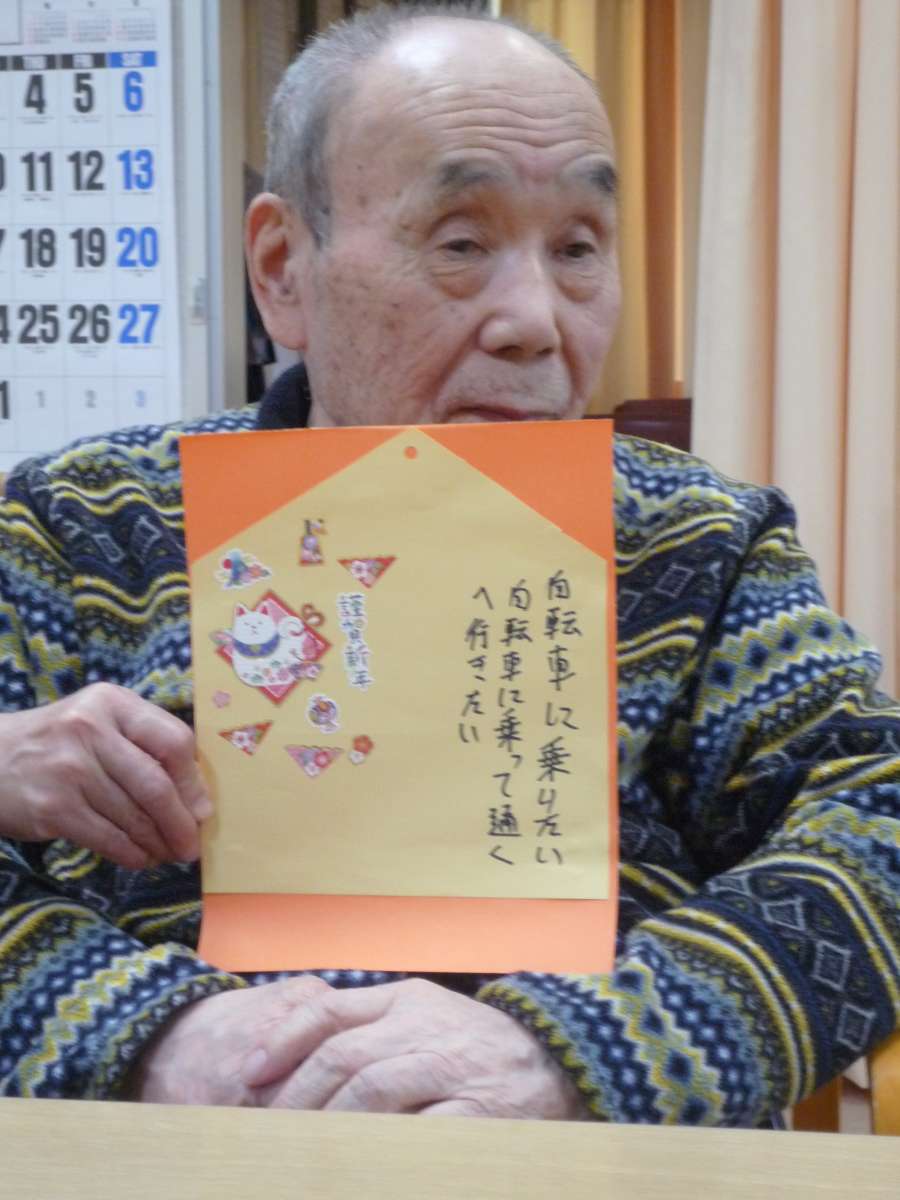 THU FRI SAT
4 5 6
11 12 13
18 19 20
25 26 27
1 2 3
自転車に乗りたい
自転車に乗って遠く
へ行きたい
謹賀新年